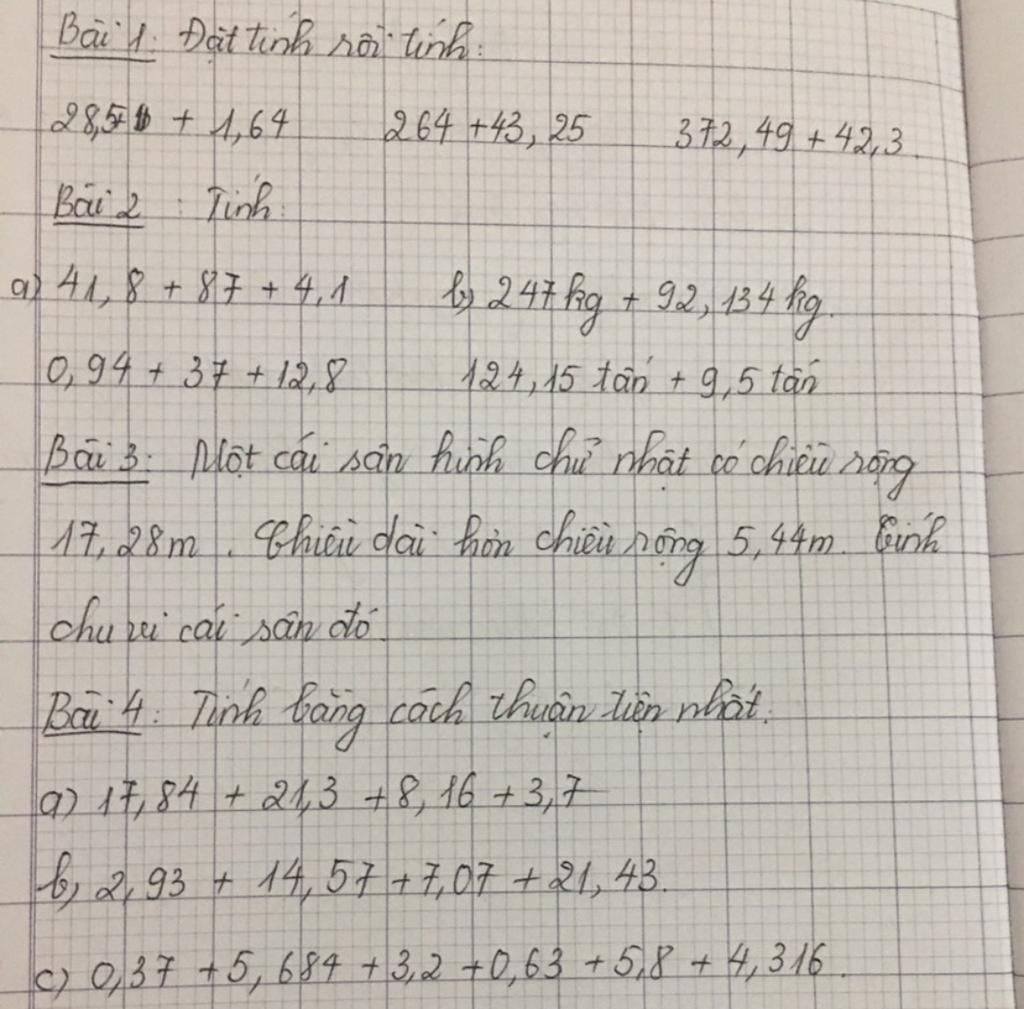 Bài 1: Đặt tính rồi tính:
28,5 + 1,64 264 + 43,25 372,49 + 42,3
Bài 2: Tính:
a) 41,8 + 87 + 4,1 b) 247 kg + 92,134 kg.
0,94 + 37 + 12,8 124,15 tấn + 9,5 tấn
Bài 3: Một cái sân hình chữ nhật có chiều rộng
17,28m. Chiều dài hơn chiều rộng 5,44m. Tính
chu vi cái sân đó.
Bài 4: Tính bằng cách thuận tiện nhất:
a) 17,84 + 21,3 + 8,16 + 3,7
b) 2,93 + 14,57 + 7,07 + 21,43.
c) 0,37 + 5,684 + 3,2 + 0,63 + 5,8 + 4,316.